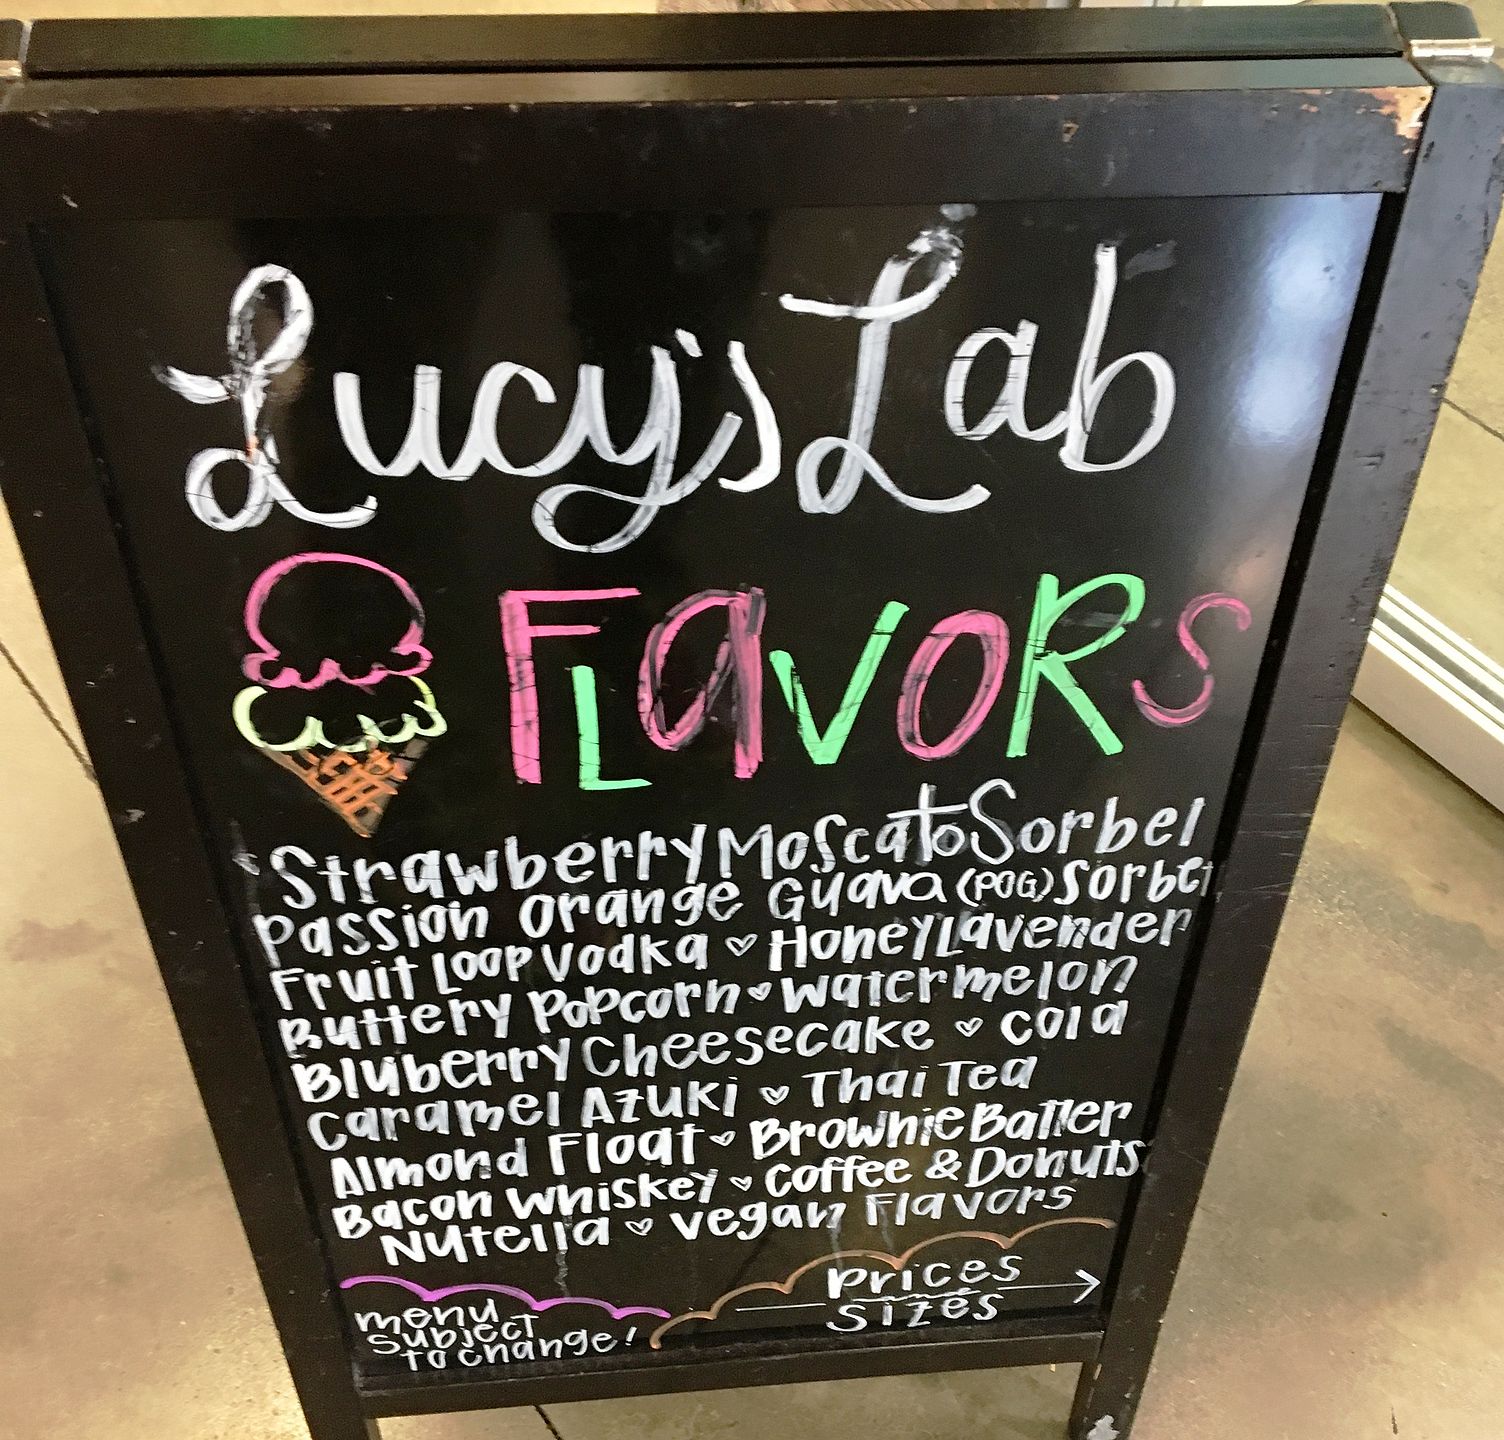 Lucy's Lab
FLaVORS
Strawberry Moscato Sorbet
Passion Orange Guava (POG) Sorbet
Fruit Loop Vodka ♡ Honey Lavender
Buttery Popcorn ♡ Watermelon
Bluberry Cheesecake ♡ Cold
Caramel Azuki ♡ Thai Tea
Almond Float ♡ Brownie Batter
Bacon Whiskey ♡ Coffee & Donuts
Nutella ♡ Vegan Flavors
menu
subject
to change!
prices
sizes